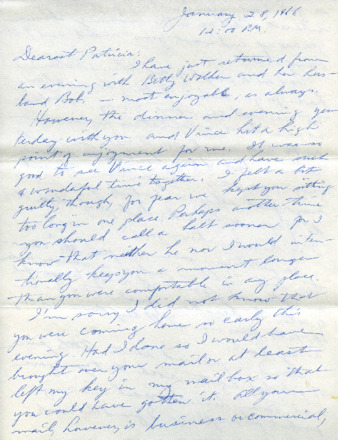 January 28, 1966
12:00 P.M.
Dearest Patricia:
I have just returned from
an evening with Betty Walker and her hus-
band Bob, — most enjoyable, as always.
However the dinner and evening yes-
terday with you and Vince hit a high
point of enjoyment for me. It was so
good to see Vince again and have such
a wonderful time together. I felt a bit
guilty, though, for fear we kept you sitting
too long in one place. Perhaps another time
you should call a halt sooner for I
know that neither he nor I would inten-
tionally keep you a moment longer
than you were comfortable in any place.
I'm sorry I did not know that
you were coming home so early this
evening. Had I done so I would have
brought over your mail or at least
left my key in my mailbox so that
you could have gotten it. All your
mail, however, is business or commercial,